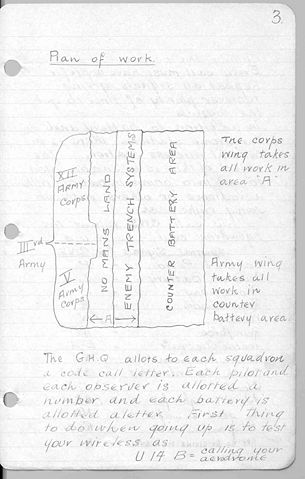 3.
Plan of work.
XII
ARMY
Corps
IIIrd
Army
V
Army
Corps
NO MANS LAND
ENEMY TRENCH SYSTEMS
COUNTER BATTERY AREA
A
The corps
wing takes
all work in
area "A"
Army wing
takes all
work in
counter
battery area.
The G.H.Q allots to each squadron
a code call letter. Each pilot and
each observer is allotted a
number and each battery is
allotted a letter. First thing
to do when going up is to test
your wireless as
U 14 B = calling your
aerodrome